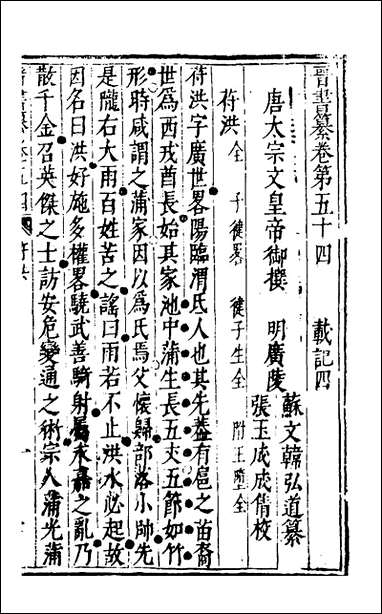 晉書纂卷第五十四 載記四
唐太宗文皇帝御撰 明廣陵
蘇文韓弘道纂
張玉成成倩校
苻洪全 子健畧 健子生全 附王墮全
苻洪字廣世畧陽臨渭氐人也其先蓋有扈之苗裔
世爲西戎酋長始其家池中蒲生長五丈五節如竹
形時咸謂之蒲家因以爲氏焉父懷歸部落小帥先
是隴右大雨百姓苦之謠曰雨若不止洪水必起故
因名曰洪好施多權畧驍武善騎射屬永嘉之亂乃
散千金召英傑之士訪安危變通之術宗人蒲光蒲